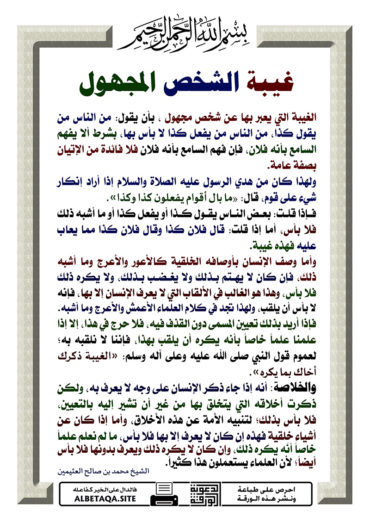 بسم الله الرحمن الرحيم
غيبة الشخص المجهول
الغيبة التي يعبر بها عن شخص مجهول ، بأن يقول: من الناس من
يقول كذا، من الناس من يفعل كذا لا بأس بها، بشرط ألا يفهم
السامع بأنه فلان، فإن فهم السامع بأنه فلان فلا فائدة من الإتيان
بصفة عامة.
ولهذا كان من هدي الرسول عليه الصلاة والسلام إذا أراد إنكار
شيء على قوم، قال: «ما بال أقوام يفعلون كذا وكذا».
فإذا قلت: بعض الناس يقول كذا أو يفعل كذا أو ما أشبه ذلك
فلا بأس، أما إذا قلت: قال فلان كذا وقال فلان كذا مما يعاب
عليه فهذه غيبة.
وأما وصف الإنسان بأوصافه الخلقية كالأعور والأعرج وما أشبه
ذلك، فإن كان لا يهتم بذلك ولا يغضب بذلك، ولا يكره ذلك
فلا بأس، وهذا هو الغالب في الألقاب التي لا يعرف الإنسان إلا بها، فإنه
لا بأس أن يلقب، ولهذا نجد في كلام العلماء الأعمش والأعرج وما أشبه.
فإذا أريد بذلك تعيين المسمى دون القذف فيه، فلا حرج في هذا، إلا إذا
علمنا علماً خاصاً بأنه يكره أن يلقب بهذا، فإننا لا نلقبه به؛
لعموم قول النبي صلى الله عليه وعلى آله وسلم: «الغيبة ذكرك
أخاك بما يكره».
والخلاصة: أنه إذا جاء ذكر الإنسان على وجه لا يعرف به، ولكن
ذكرت أخلاقه التي يتخلق بها من غير أن تشير إليه بالتعيين،
فلا بأس بذلك؛ لتنبيه الأمة عن هذه الأخلاق، وأما إذا كان عن
أشياء خلقية فهذه إن كان لا يعرف إلا بها فلا بأس، ما لم نعلم علماً
خاصاً أنه يكره ذلك، وإن كان لا يكره ذلك ويعرف بدونها فلا بأس
أيضاً؛ لأن العلماء يستعملون هذا كثيراً.
الشيخ محمد بن صالح العثيمين
احرص على طباعة
ونشر هذه الورقة
الورقة الدعوية
فالدال على الخير كفاعله
ALBETAQA.SITE